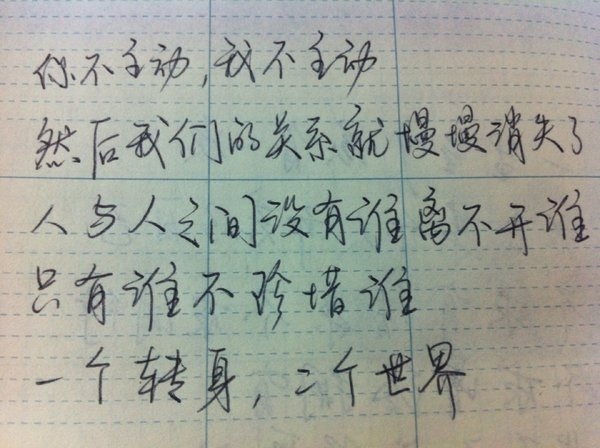 你不主动,我不主动
然后我们的关系就慢慢消失了
人与人之间没有谁离不开谁
只有谁不珍惜谁
一个转身,二个世界